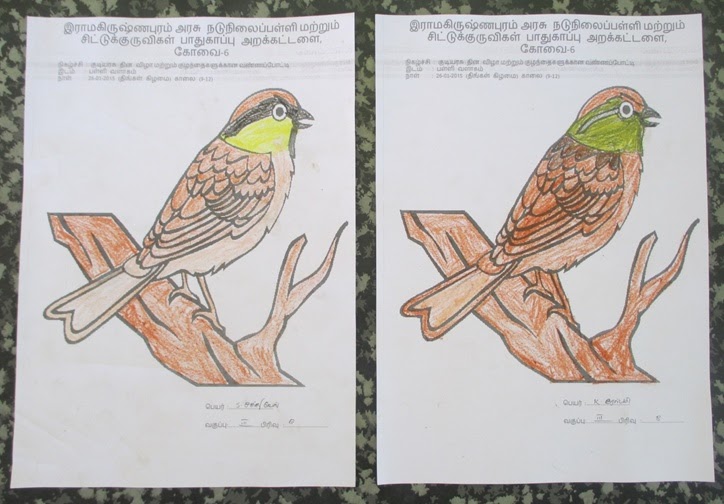 இராமகிருஷ்ணபுரம் அரசு நடுநிலைப்பள்ளி மற்றும்
சிட்டுக்குருவிகள் பாதுகாப்பு அறக்கட்டளை,
கோவை-6
நிகழ்ச்சி : குடியரசு தின விழா மற்றும் குழந்தைகளுக்கான வண்ணப்போட்டி
இடம் : பள்ளி வளாகம்
நாள் : (திங்கள் கிழமை) காலை (9-12)
பெயர் : S.
வகுப்பு III பிரிவு
இராமகிருஷ்ணபுரம் அரசு நடுநிலைப்பள்ளி மற்றும்
சிட்டுக்குருவிகள் பாதுகாப்பு அறக்கட்டளை,
கோவை-6
நிகழ்ச்சி : குடியரசு தின விழா மற்றும் குழந்தைகளுக்கான வண்ணப்போட்டி
இடம் : பள்ளி வளாகம்
நாள் : (திங்கள் கிழமை) காலை (9-12)
பெயர் : K.
வகுப்பு III பிரிவு